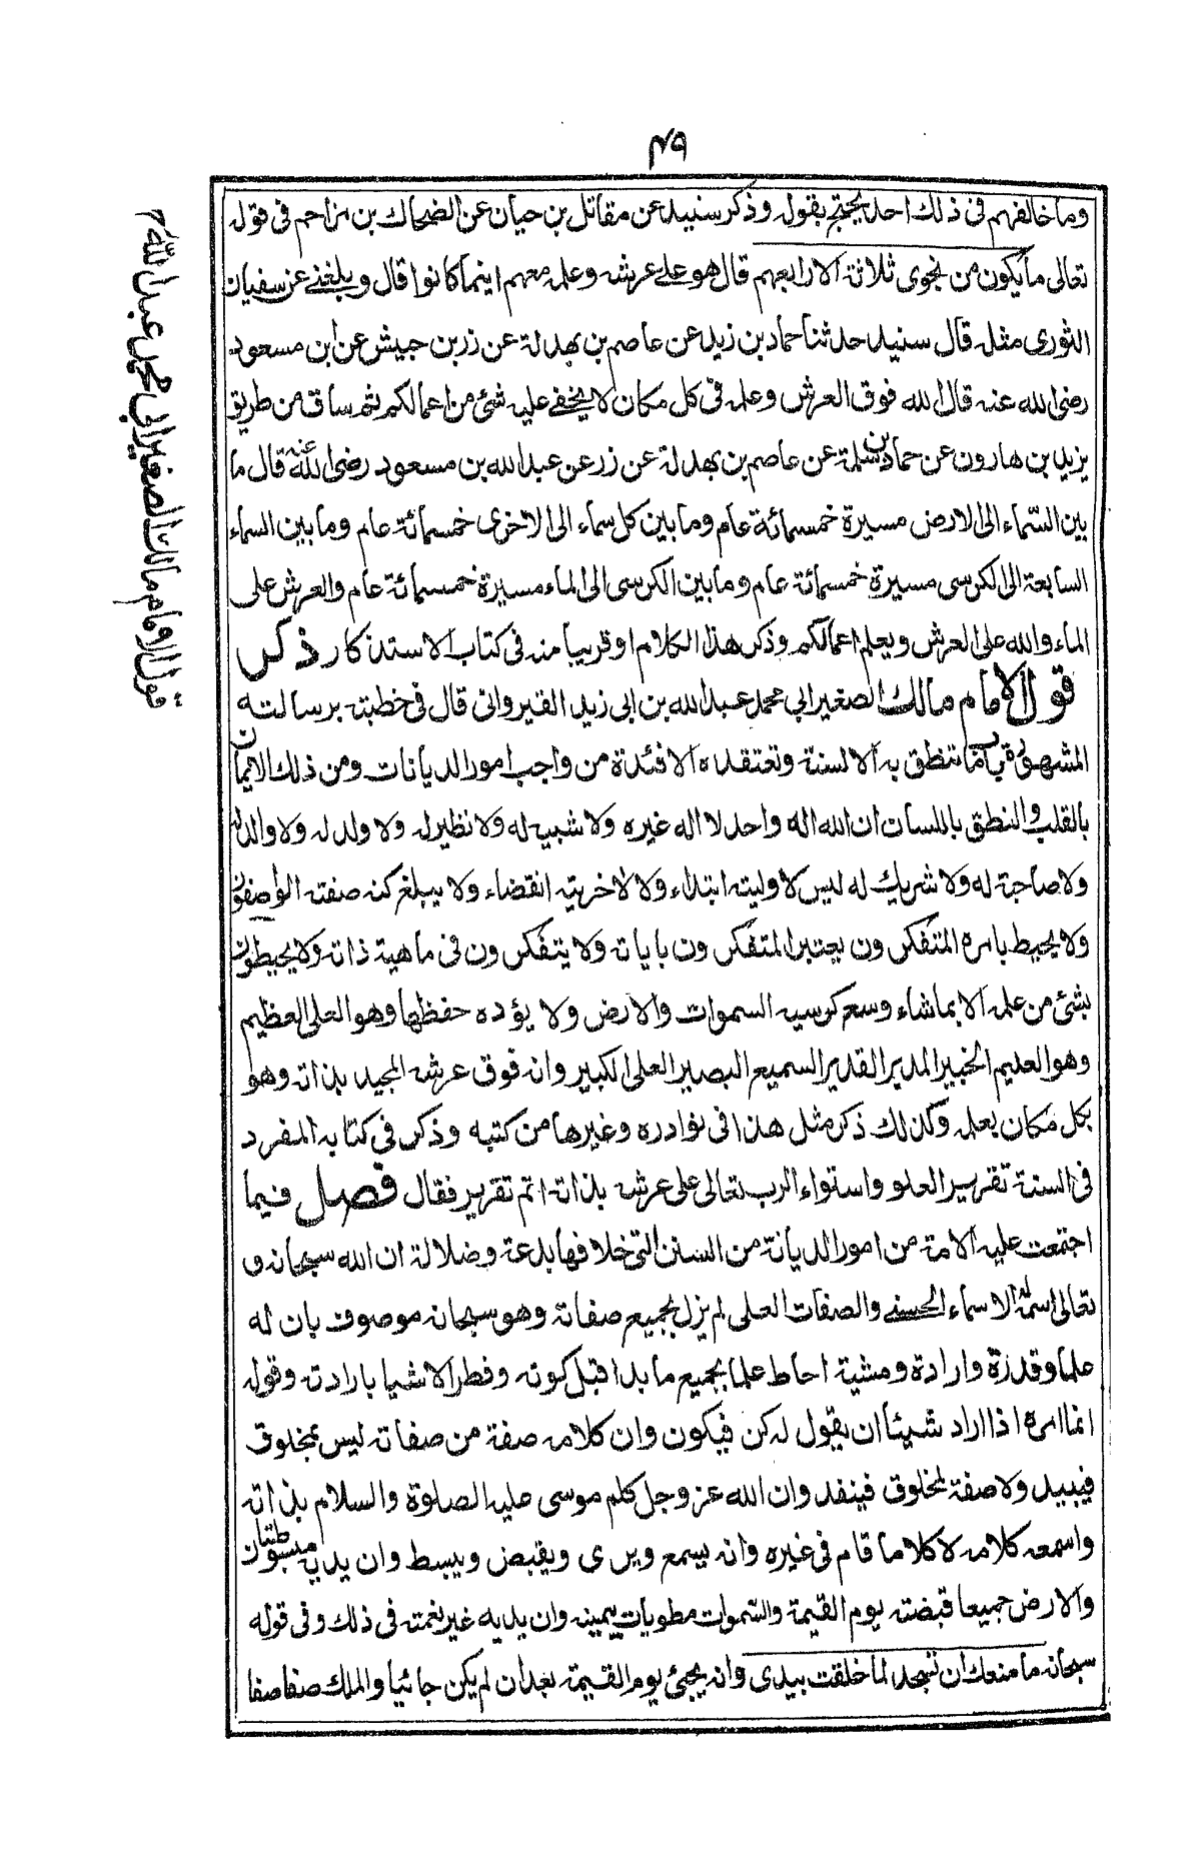 ٤٩
وما خالفهم فى ذلك احد يحتج بقوله وذكر سنيد عن مقاتل بن حيان عن الضحاك بن مزاحم فى قوله
تعالى ما يكون من نجوى ثلاثة الا رابعهم قال هو على عرشه وعلمه معهم اينما كانوا قال وبلغنے عن سفيان
الثورى مثله قال سنيد حدثنا حماد بن زيد عن عاصم بن بهدلة عن زر بن حبيش عن ابن مسعود
رضى الله عنه قال الله فوق العرش وعلمه فى كل مكان لا يخفے عليه شئ من اعمالكم ثم ساق من طريق
يزيد بن هارون عن حماد بن سلمة عن عاصم بن بهدلة عن زر عن عبدالله بن مسعود رضى الله عنه قال ما
بين السماء الى الارض مسيرة خمسمائة عام وما بين كل سماء الى الاخرى خمسمائة عام وما بين السماء
السابعة الى الكرسى مسيرة خمسمائة عام وما بين الكرسى الى الماء مسيرة خمسمائة عام والعرش على
الماء والله على العرش ويعلم اعمالكم وذكر هذا الكلام او قريبا منه فى كتاب الاستذكار ذكر
قول الامام مالك الصغير ابي محمد عبدالله بن ابى زيد القيروانى قال فى خطبته برسالته
المشهورة باب ما تنطق به الالسنة وتعتقده الافئدة من واجب امور الديانات ومن ذلك الايمان
بالقلب والنطق باللسان ان الله اله واحد لا اله غيره ولا شبيه له ولا نظير له ولا ولد له ولا والد له
ولا صاحبة له ولا شريك له ليس لاوليته ابتداء ولا لاخريته انقضاء ولا يبلغ كنه صفته الواصفون
ولا يحيط بامره المتفكرون يعتبر المتفكرون باياته ولا يتفكرون فى ماهية ذاته ولا يحيطون
بشئ من علمه الا بما شاء وسع كرسيه السموات والارض ولا يؤده حفظهما وهو العلى العظيم
وهو العليم الخبير المدبر القدير السميع البصير العلى الكبير وانه فوق عرشه المجيد بذاته وهو
بكل مكان بعلمه وكذلك ذكر مثل هذا فى نوادره وغيرها من كتبه وذكر فى كتابه المفرد
فى السنة تقرير العلو واستواء الرب تعالى على عرشه بذاته اتم تقرير فقال فصل فيما
اجتمعت عليه الامة من امور الديانة من السنن التى خلافها بدعة وضلالة ان الله سبحانه و
تعالى اسمه له الاسماء الحسنے والصفات العلى لم يزل بجميع صفاته وهو سبحانه موصوف بان له
علما وقدرة وارادة ومشية احاط علما بجميع ما بدا قبل كونه وفطر الاشيا بارادته وقوله
انما امره اذا اراد شيئا ان يقول له كن فيكون وان كلامه صفة من صفاته ليس بمخلوق
فيبيد ولا صفة لمخلوق فينفد وان الله عز وجل كلم موسى عليه الصلوة والسلام بذاته
واسمعه كلامه لا كلاما قام فى غيره وانه يسمع ويرى ويقبض ويبسط وان يديه مبسوطتان
والارض جميعا قبضته يوم القيمة والسموات مطويات بيمينه وان يديه غير نعمته فى ذلك وفى قوله
سبحانه ما منعك ان تسجد لما خلقت بيدى وانه يجئ يوم القيمة بعد ان لم يكن جائيا والملك صفا صفا
قول الامام مالك الصغير ابي محمد عبد الله رح